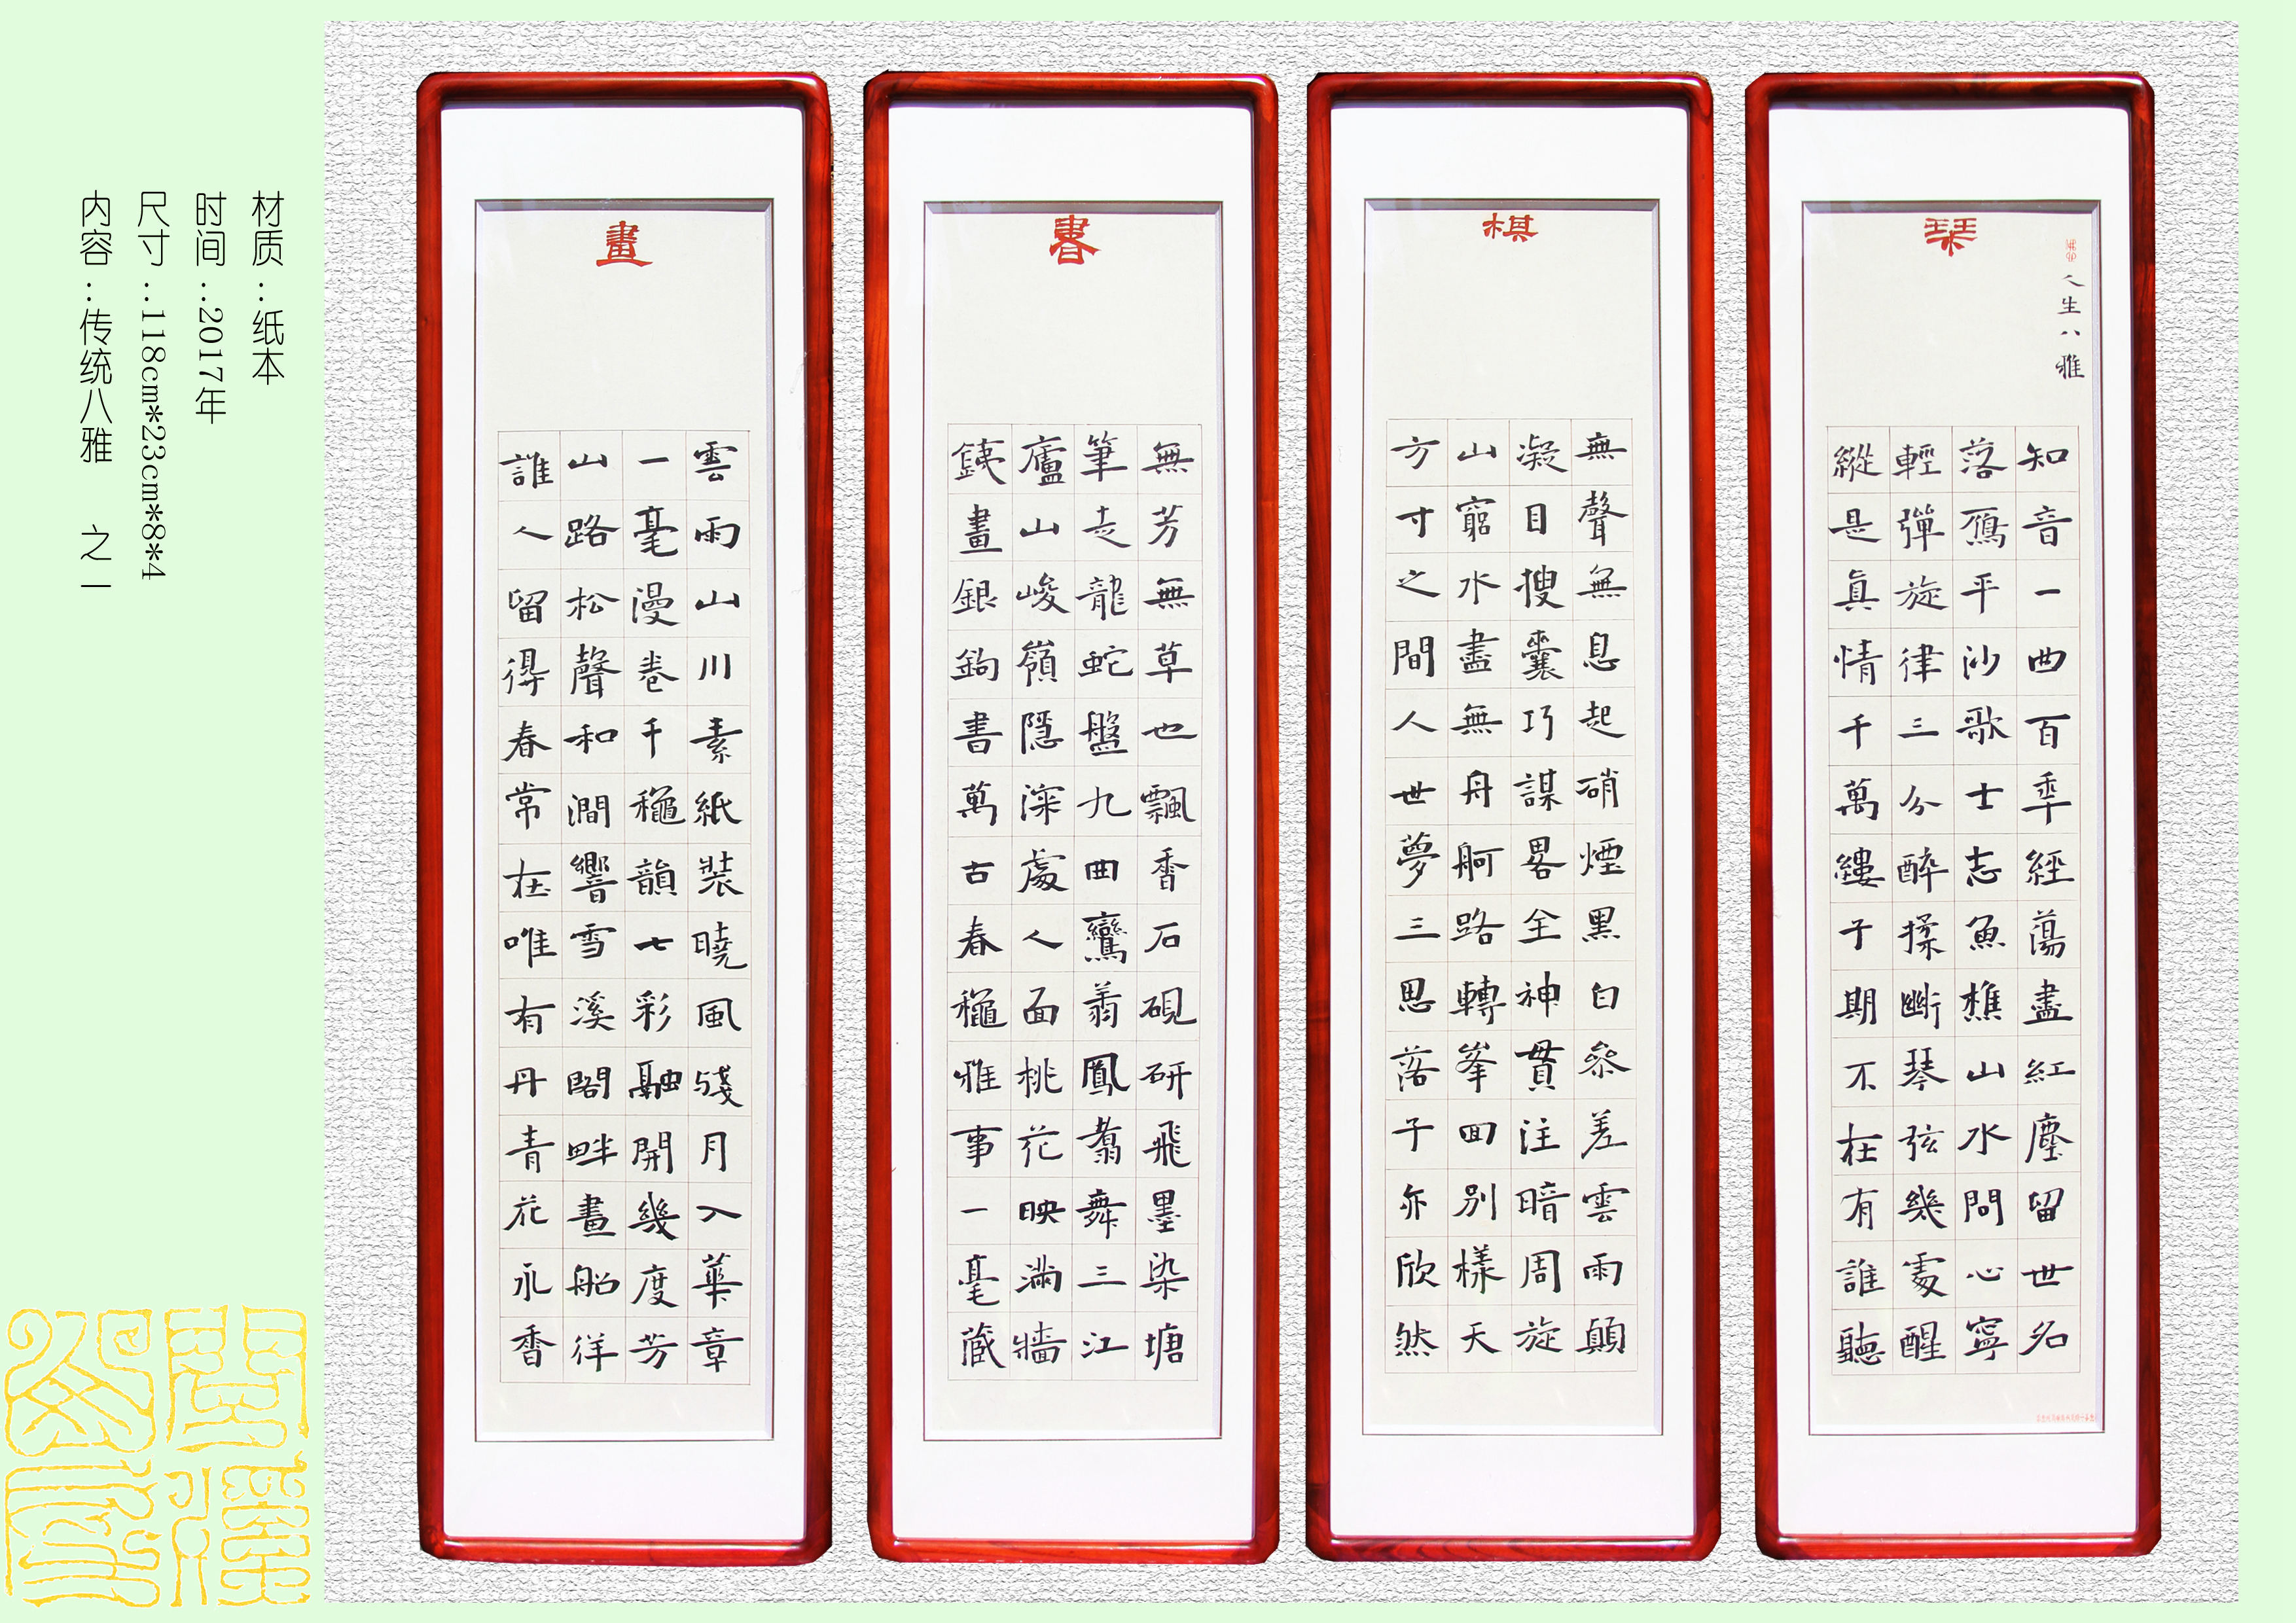 材质：纸本
时间：2017年
尺寸：118cm*23cm*8*4
内容：传统八雅 之一
琹
人生八雅
知音一曲百年經蕩盡紅塵留世名
落鴈平沙歌士志魚樵山水問心寧
輕彈旋律三分醉揉斷琴弦幾處醒
縱是真情千萬縷子期不在有誰聽
棋
無聲無息起硝煙黑白叅差雲雨顛
凝目搜囊巧謀畧全神貫注暗周旋
山窮水盡無舟舸路轉峯回別樣天
方寸之間人世夢三思落子亦欣然
書
無芳無草也飄香石硯研飛墨染塘
筆走龍蛇盤九曲鸞翥鳳翥舞三江
廬山峻嶺隱深處人面桃花映滿牆
銕畫銀鉤書萬古春龝雅事一毫藏
畫
雲雨山川素紙裝曉風殘月入華章
一毫漫卷千龝韻七彩融開幾度芳
山路松聲和澗響雪溪閣畔畫船徉
誰人留得春常在唯有丹青花永香